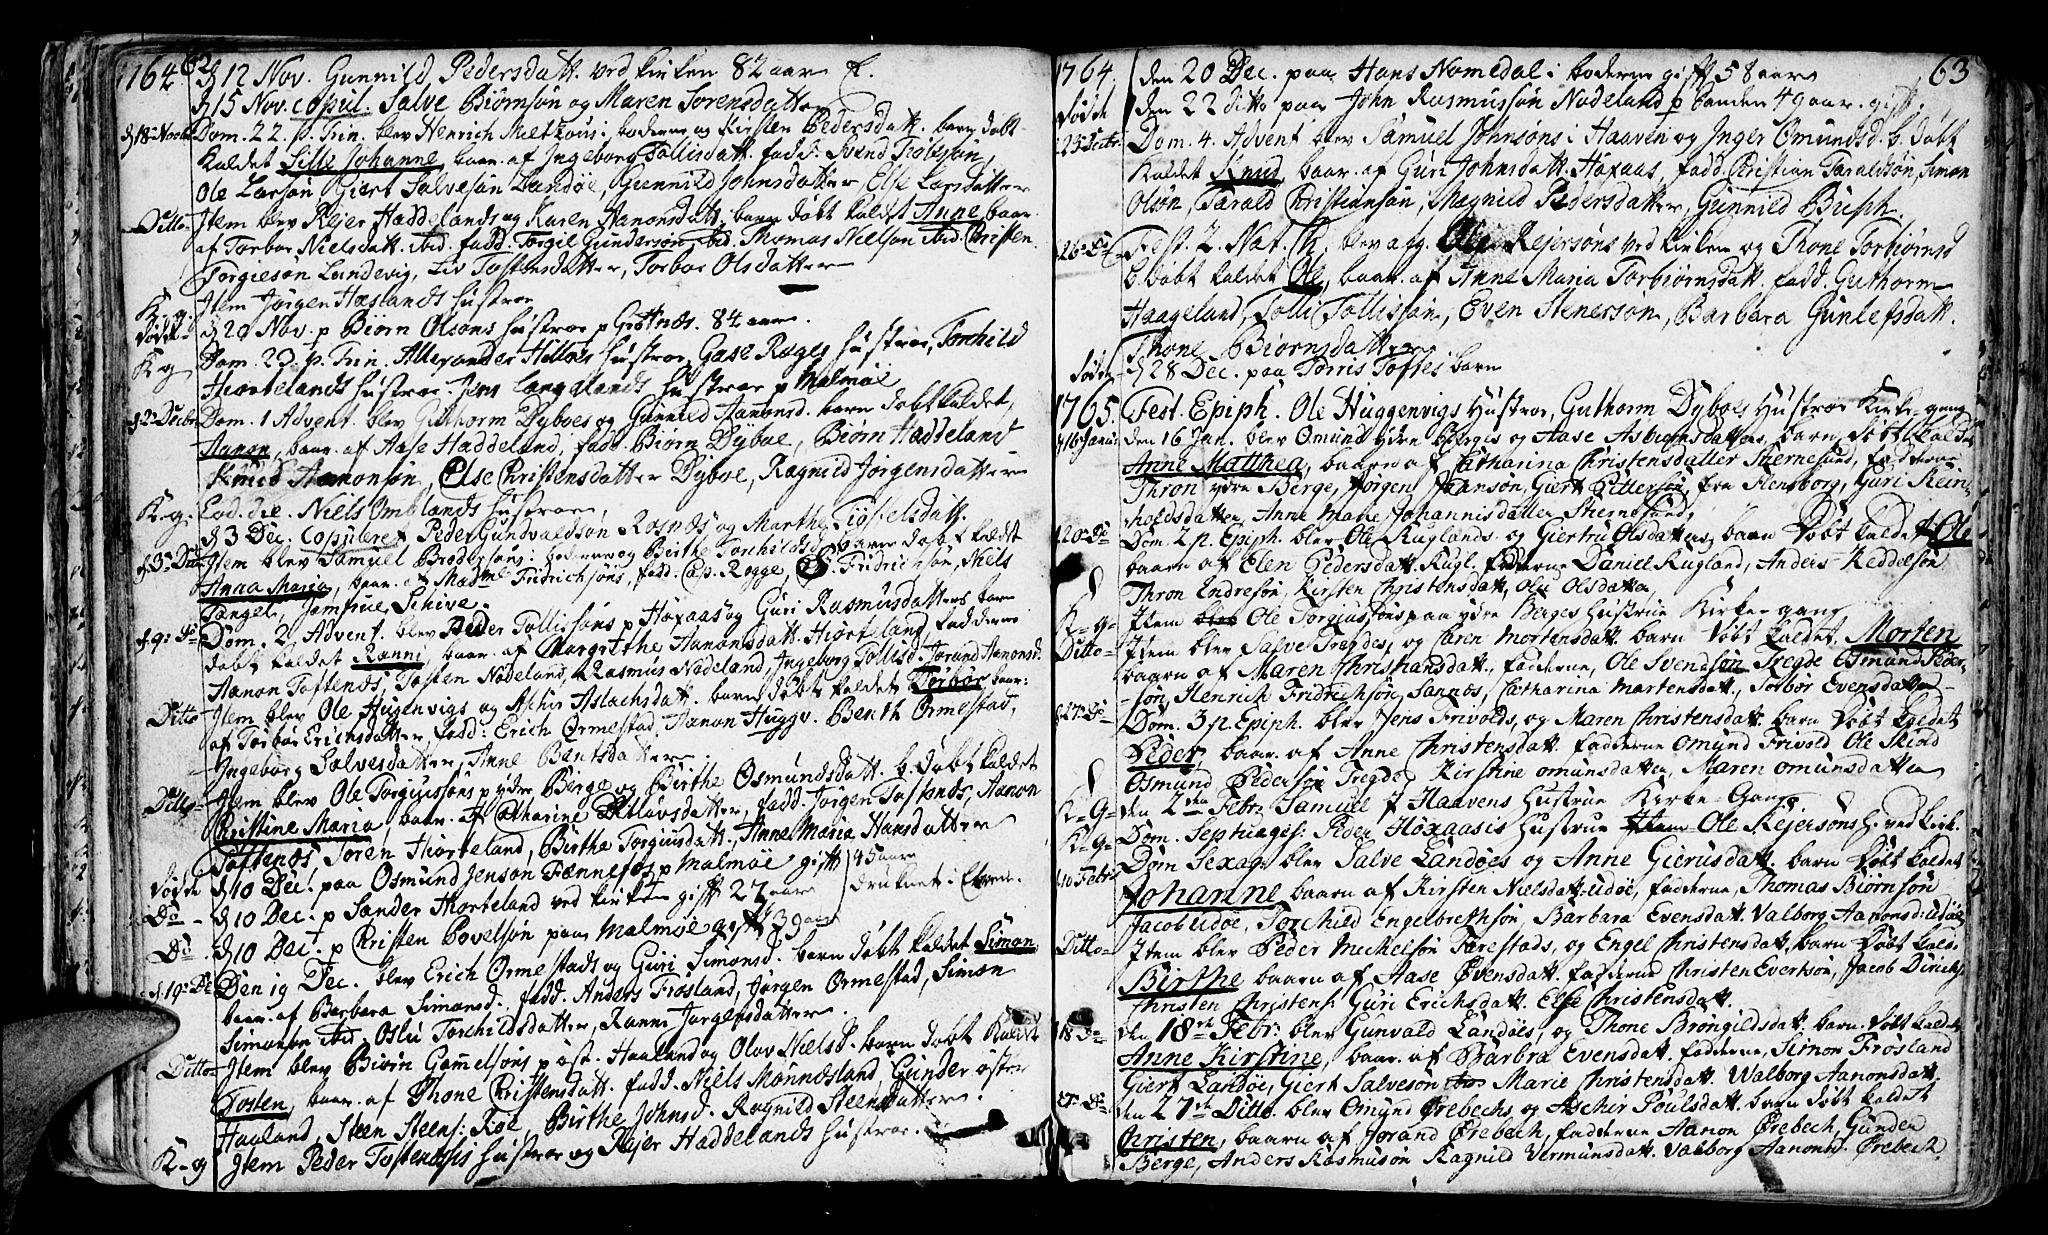 1764 62
d 12 Nov. Gunnild Pedersdatt. ved kirken 82 aar
d 15 Nov. copul. Salve Biørnsøn og Maren Sørensdatter
d 18 Novbr Dom. 22. p. Trin. blev Henrich i boderne og Kirsten Pedersdatt. barn døbt
kaldet Lille Johanne baar. af Ingeborg Tollisdatt. fadd. Svend Jcobsøn,
Ole Larsøn, Giert Salvesøn Landøe, Gunnild Johnsdatter, Else Larsdatter
Ditto Item blev Rejer Haddelands og Karen Aanonsdatt. barn døbt kaldet Anne baar.
af Torbor Nielsdatt. ibid. fadd. Torgil Gundersøn ibid. Thomas Nielsøn ibid. Christen
Torgiesøn Landevig, Liv Tostensdatter, Torbor Olsdatter
K-g. Item Jørgen Haslands hustroe
Døde d 20 Nov. p Biørn Olsøns hustroe p Grøtnæs. 84 aar.
K-g Dom. 23. p. Trin. Allexander Hilløes hustroe, Gase Roges hustroe, Torchild
Hiortelands hustroe. Jens Langelands hustroe p Malmøe
d 2 Decbr Dom. 1 Advent. blev Guthorm Dyboes og Gunnild Aanonsd. barn døbt kaldet,
Aanon, baar. af Aase Haddeland, fadd. Biørn Dyboe, Biørn Haddeland
Knud Aanonsøn, Else Christensdatter Dyboe, Ragnild Jørgensdatter
K-g. Eod. die. Niels Omblands hustroe,
d 3 Dec. Copuleret Peder Gundvaldsøn Rosnæs og Marthe Tiøstelsdatt.
d. 3 Ditto Item blev Samuel Brodersøns i boderne og Birthe Torchildsd. barn døbt kaldet
Anna Maria, baar. af Madme Fridrichsøns, fadd: Cap. Rogge, Fridrichsøn, Niels
Tangel. Jomfrue Schive.
d. 9. Do Dom. 2. Advent. blev Peder Tollisøns p Høxaas og Guri Rasmusdatters barn
døbt kaldet Ranni, baar. af Margrethe Aanonsdatt. Hiorteland, fadderne
Aanon Toftenæs, Tosten Nodeland, Rasmus Nodeland, Ingeborg Tollisd. Jorand Aanonsd.
Ditto Item blev Ole Hugenvigs og Aschir Aslachsdatt. barn døbt kaldet Torbor baar:
af Torbor Erichsdatter fadd: Erich Ormestad, Aanon Huggv. Benth Ormestad,
Ingeborg Salvesdatter, Anne Bentsdatter
Ditto Item blev Ole Torgiussøns p ydre Berge og Birthe Osmundsdatt. b. døbt kaldet
Christine Maria, baar. af Catharine Detløvsdatter, fadd. Jørgen Toftenæs, Aanon
Toftenæs Søren Hiorteland, Birthe Torgiusdatt. Anne Maria Hansdatter
Døde d 10 Dec! paa Osmund Jenson Fænnefos p Malmøe gift 45 aar
Do d 10 Dec. p Sander Hiorteland ved kirken gift 27 aar druknet i Elven.
Do d 10 Dec. p Christen Povelsøn paa Malmøe gift 39 aar
d. 19 Do Den 19 Dec. blev Erich Ormestads og Guri Simonsd. barn døbt kaldet Simon
baar. af Barbara Simonsd. fadd. Anders Frøsland, Jørgen Ormestad, Simon
Simonsøn ibid. Oslu Torchildsdatter, Ranni Jørgensdatter.
Ditto Item blev Biørn Gamelsøns p øst. Haaland og Olov Nielsd. barn døbt kaldet
Tosten, baar. af Thone Christensdatt. fadd. Niels Mønnesland, Gunder østre
Haaland, Steen Steens: Roe, Birthe Johnsd. Ragnild Steensdatter.
K-g Item Peder Tostensøns hustroe og Rejer Haddelands hustroe.
1764. den 20 Dec. paa Hans Nomedal i boderne gift 58 aar 63
Døde den 22 ditto paa John Rasmussøn Nodeland p Sanden 49 aar. gift.
23 Decbr. Dom. 4. Advent blev Samuel Johnsøns i Haaven og Inger Omundsd. b. døbt
kaldet Knud baar. af Guri Johnsdatt. Høxaas, fadd. Christian Taraldsøn, Simon
Olsøn, Tarald Christiansøn, Magnild Pedersdatter, Gunnild Buseph.
26 D. Fest. 2. Nat. Ch. blev agg Ole Rejersøns ved kirken og Thone Torbiørnsd
b. døbt kaldet Ole, baar. af Anne Maria Torbiørnsdatt. fadd. Guthorm
Haageland, Tolli Tollissøn, Even Stenersøn, Barbara Gunlefsdatt.
Thone Biørnsdatter
Døde d 28 Dec. paa Torris Toftes barn
1765. Fest. Epiph. Ole Huggenvigs Hustroe, Guthorm Dyboes Hustroe Kirke-gang
d 16 Janu: den 16 Jan. blev Omund ydre Bergis og Aase Asbiørnsdatters, barn døbt kaldet
Anne Matthea, baaren af Catharina Christensdatter Stærnesund, fadderne
Thron ydre Berge, Jørgen Jfansøn, Giert Pittersøn, fra Flensborg, Guri Rein-
holdsdatter, Anne Marie Johannisdatter Sternesund,
20 Do Dom. 2 p. Epiph. blev Ole Ruglands og Giertru Olsdatters barn døbt kaldet Ole
baaren af Elen Pedersdatt. Rugl. fadderne Daniel Rugland, Anders Keddelsøn
Thron Endresøn, Kirsten Christensdatt. Olu Olsdatter
K-g- Item blev Ole Torgiusøns paa ydre Berges Hustrue Kirke-gang
Ditto Item blev Salve Tregdes, og Caren Mortensdatt. barn døbt kaldet. Morten
baaren af Maren Christiansdatt., fadderne, Ole Svendsøn Tregde Osmund Peder-
søn, Henrich Fridrichsøn, Sannæs, Catharina Martensdatt. Torbor Evensdatter
27 Do Dom. 3 p. Epiph. blev Jens Trivolds, og Maren Christensdatt. barn døbt kaldet
Peder, baar. af Anne Christensdatt. fadderne Omund Frivold Ole Skind
Osmund Pedersøn Tregde, Kirstine omunsdatter, Maren omunsdatter
K-G- den 2den Febr Samuel i Haavens Hustrue Kirke-Gang
K-g- Dom. Septuages: Peder Høxaasis Hustrue Item Ole Rejersøns H. ved Kirk.
d 10 Febr Dom Sexag. blev Salve Landøes og Anne Gierusdatt. barn døbt kaldet
Johanne baarn af Kirsten Nielsdatt. udøe, fadderne, Thomas Biørnsøn
Jacob udøe, Torchild Engelbrethsøn, Barbara Evensdatt. Valborg Aanonsd: udøe
Ditto Item blev Peder Michelsøn Farestads, og Engel Christensdatt. barn døbt kald.
Birthe baarn af Aase Evensdatt. fadderne Christen Evertsøn, Jacob Dirichs.
Christen Christens. Guri Erichsdatt. Else Christensdatt.
18 Do den 18de Febr: blev Gunvald Landøes, og Thone Brøngildsdatt. barn. døbt kaldet
Anne Kirstine, baar. af Barbra Evensdatt. fadderne, Simon Frøsland
Giert Landøe, Giert Salvesøn Marie Christensdatt. Walborg Aanonsdatt.
27 Do den 27de Ditto. blev Omund Ørebechs, og Aschir Poulsdatt. barn døbt kaldet
Christen, baarn af Jorand Ørebech, fadderne Aanon Ørebech, Gunder
Berge, Anders Rasmusøn Ragnild Vermunsdatt. Valborg Aanonsd. Ørebech.